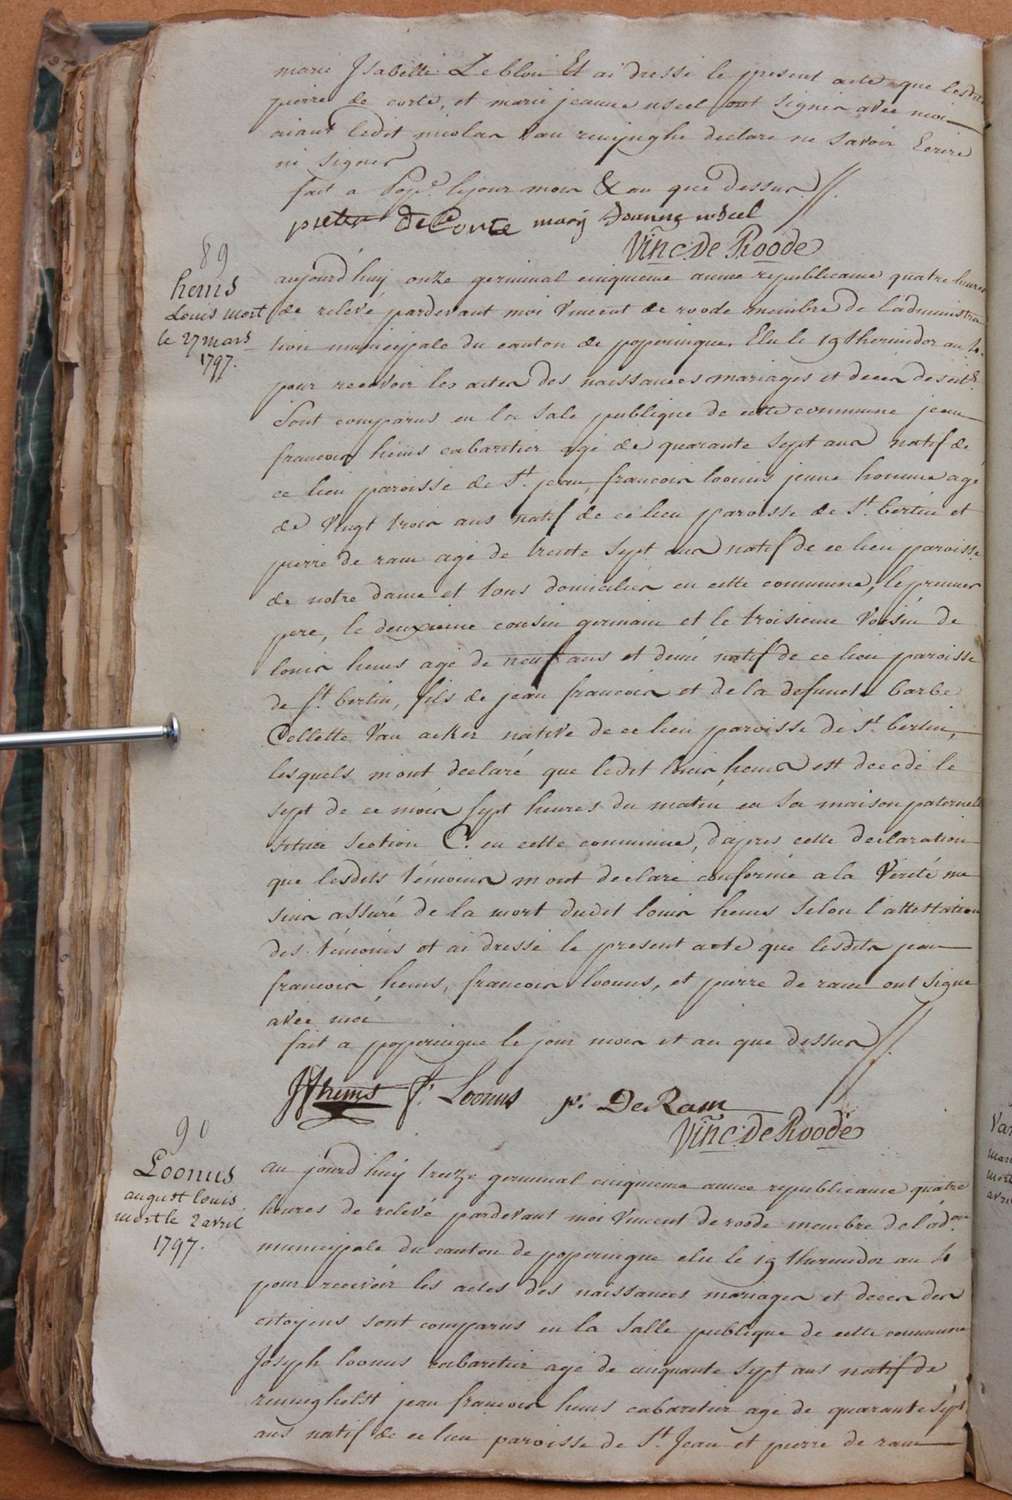 marie Isabelle Leblon Et ai dressé le present acte que lesdits
pierre de corte, et marie jeanne useel ont signér avec moi
aiant ledit nicolas van renynghe declare ne savoir Ecrire
ni signer
fait a Pop.e le jour mois & an que dessus //.
pieter De Corte marij Joanne useel
Vinc: De Roode
89
heins
Louis mort
le 27 mars
1797.
aujourd'huy onze germinal cinquieme annee republicaine quatre heures
de relevé pardevant moi Vincent de roode membre de l'administra
tion municipale du canton de poperingue. Elu le 19 thermidor an 4.
pour recevoir les actes des naissances mariages et deces des cit.s
Sont comparus en la sale publique de cette commune jean
francois heins cabaretier agé de quarante sept ans natif de
ce lieu paroisse de St. jean, francois loonus jeune homme age
de Vingt trois ans natif de ce lieu paroisse de St. bertin et
pierre de ram agé de trente sept ans natif de ce lieu paroisse
de notre dame et tous domiciliés en cette commune, le premier
pere, le deuxieme cousin germain et le troisieme Voisin de
louis heins agé de neuf ans et demi natif de ce lieu paroisse
de St. bertin, fils de jean francois et de la defuncte barbe
Collette Van acker native de ce lieu paroisse de St. bertin,
lesquels m'ont declaré que ledit louis heins est decedé le
sept de ce mois sept heures du matin en sa maison paternele
située section C. en cette commune, d'apres cette declaration
que lesdits témoins m'ont declaré conforme a la Verité me
suis assuré de la mort dudit louis heins selon l'attestation
des témoins et ai dressé le present acte que lesdits jean
francois heins, francois loonus, et pierre de ram ont signé
avec moi
fait a poperingue le jour mois et an que dessus //.
JF heins f: Loonus p: De Ram
Vinc: De Roode
90
Loonus
august louis
mort le 2 avril
1797.
au jourd'huy treize germinal cinquieme annee republicaine quatre
heures de relévé pardevant moi Vincent de roode membre de l'ad.on
municipale du canton de poperingue elu le 19 thermidor an 4
pour recevoir les actes des naissances mariages et deces des
citoyens sont comparus en la Salle publique de cette commune
Joseph loonus cabaretier agé de cinquante sept ans natif de
renninghelst jean francois heins cabaretier age de quarante sept
ans natif de ce lieu paroisse de St. Jean et pierre de ram